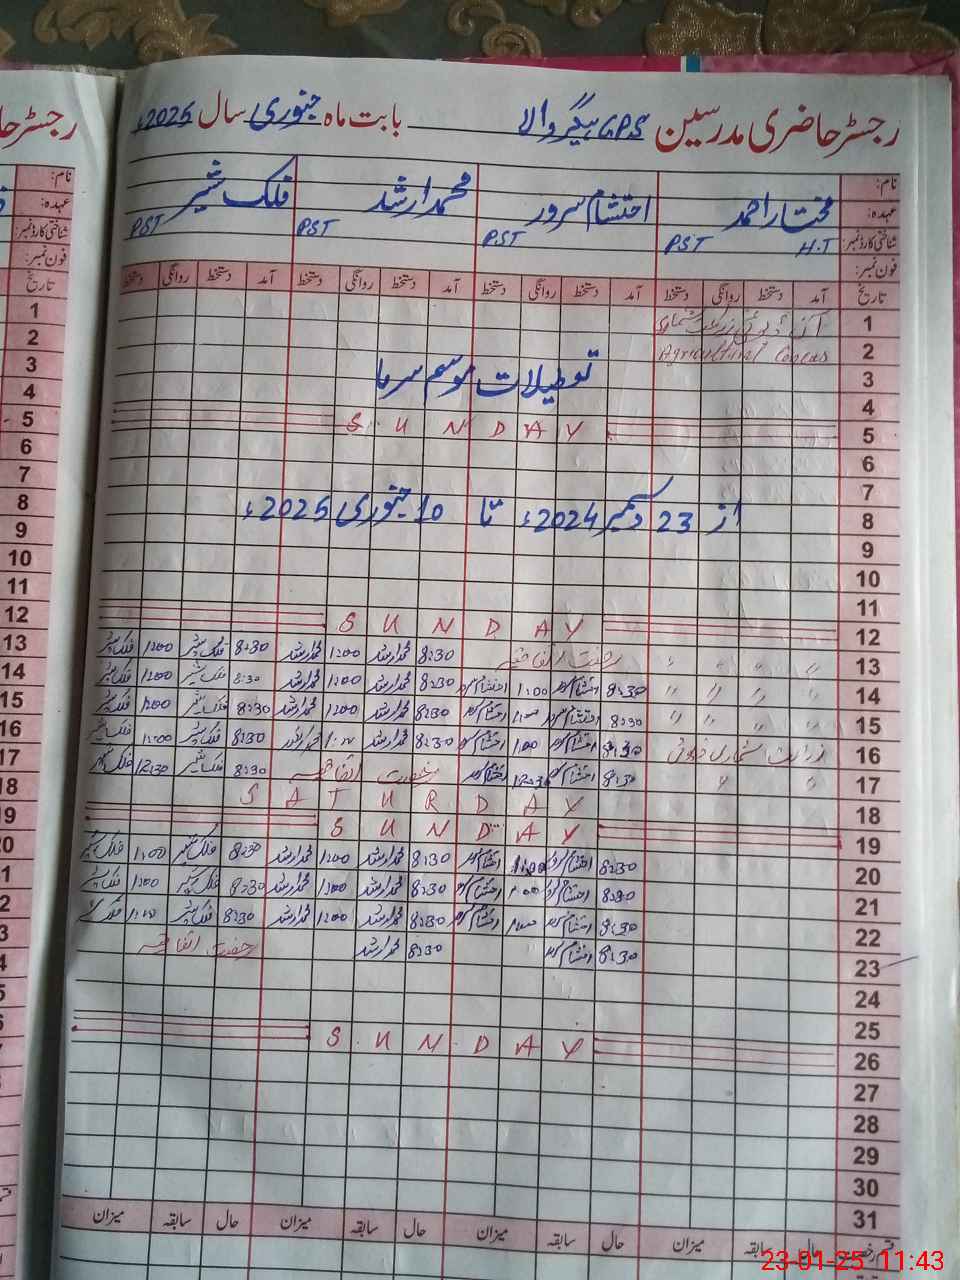 رجسٹر حاضری مدرسین GPS بیگر والا بابت ماہ جنوری سال 2025ء
نام: مختار احمد احتشام سرور محمد ارشد فلک شیر
عہدہ: H.T PST PST PST PST
شناختی کارڈ نمبر:
فون نمبر:
تاریخ آمد دستخط روانگی دستخط آمد دستخط روانگی دستخط آمد دستخط روانگی دستخط آمد دستخط روانگی دستخط
1 آن ڈیوٹی زراعت شماری
2 Agricultural
3 تعطیلات موسم سرما
4
5 SUNDAY
6
7
8 از 23 دسمبر 2024ء تا 10 جنوری 2025ء
9
10
11
12 SUNDAY
13 〃 〃 〃 〃 رخصت اتفاقیہ 8:30 محمد ارشد 1:00 محمد ارشد 8:30 فلک شیر 1:00 فلک شیر
14 〃 〃 〃 〃 8:30 احتشام سرور 1:00 احتشام سرور 8:30 محمد ارشد 1:00 محمد ارشد 8:30 فلک شیر 1:00 فلک شیر
15 〃 〃 〃 〃 8:30 احتشام سرور 1:00 احتشام سرور 8:30 محمد ارشد 1:00 محمد ارشد 8:30 فلک شیر 1:00 فلک شیر
16 زراعت شماری ڈیوٹی 8:30 احتشام سرور 1:00 احتشام سرور 8:30 محمد ارشد 1:00 محمد ارشد 8:30 فلک شیر 1:00 فلک شیر
17 〃 〃 〃 8:30 احتشام سرور 12:30 احتشام رخصت اتفاقیہ 8:30 فلک شیر 12:30 فلک شیر
18 SATURDAY
19 SUNDAY
20 8:30 احتشام سرور 1:00 احتشام سرور 8:30 محمد ارشد 1:00 محمد ارشد 8:30 فلک شیر 1:00 فلک شیر
21 8:30 احتشام سرور 1:00 احتشام سرور 8:30 محمد ارشد 1:00 محمد ارشد 8:30 فلک شیر 1:00 فلک شیر
22 8:30 احتشام سرور 1:00 احتشام سرور 8:30 محمد ارشد 1:00 محمد ارشد 8:30 فلک شیر 1:00 فلک شیر
23 8:30 احتشام سرور 8:30 محمد ارشد رخصت اتفاقیہ
24
25
26 SUNDAY
27
28
29
30
31
حال سابقہ میزان حال سابقہ میزان حال سابقہ میزان حال سابقہ میزان
23-01-25 11:43